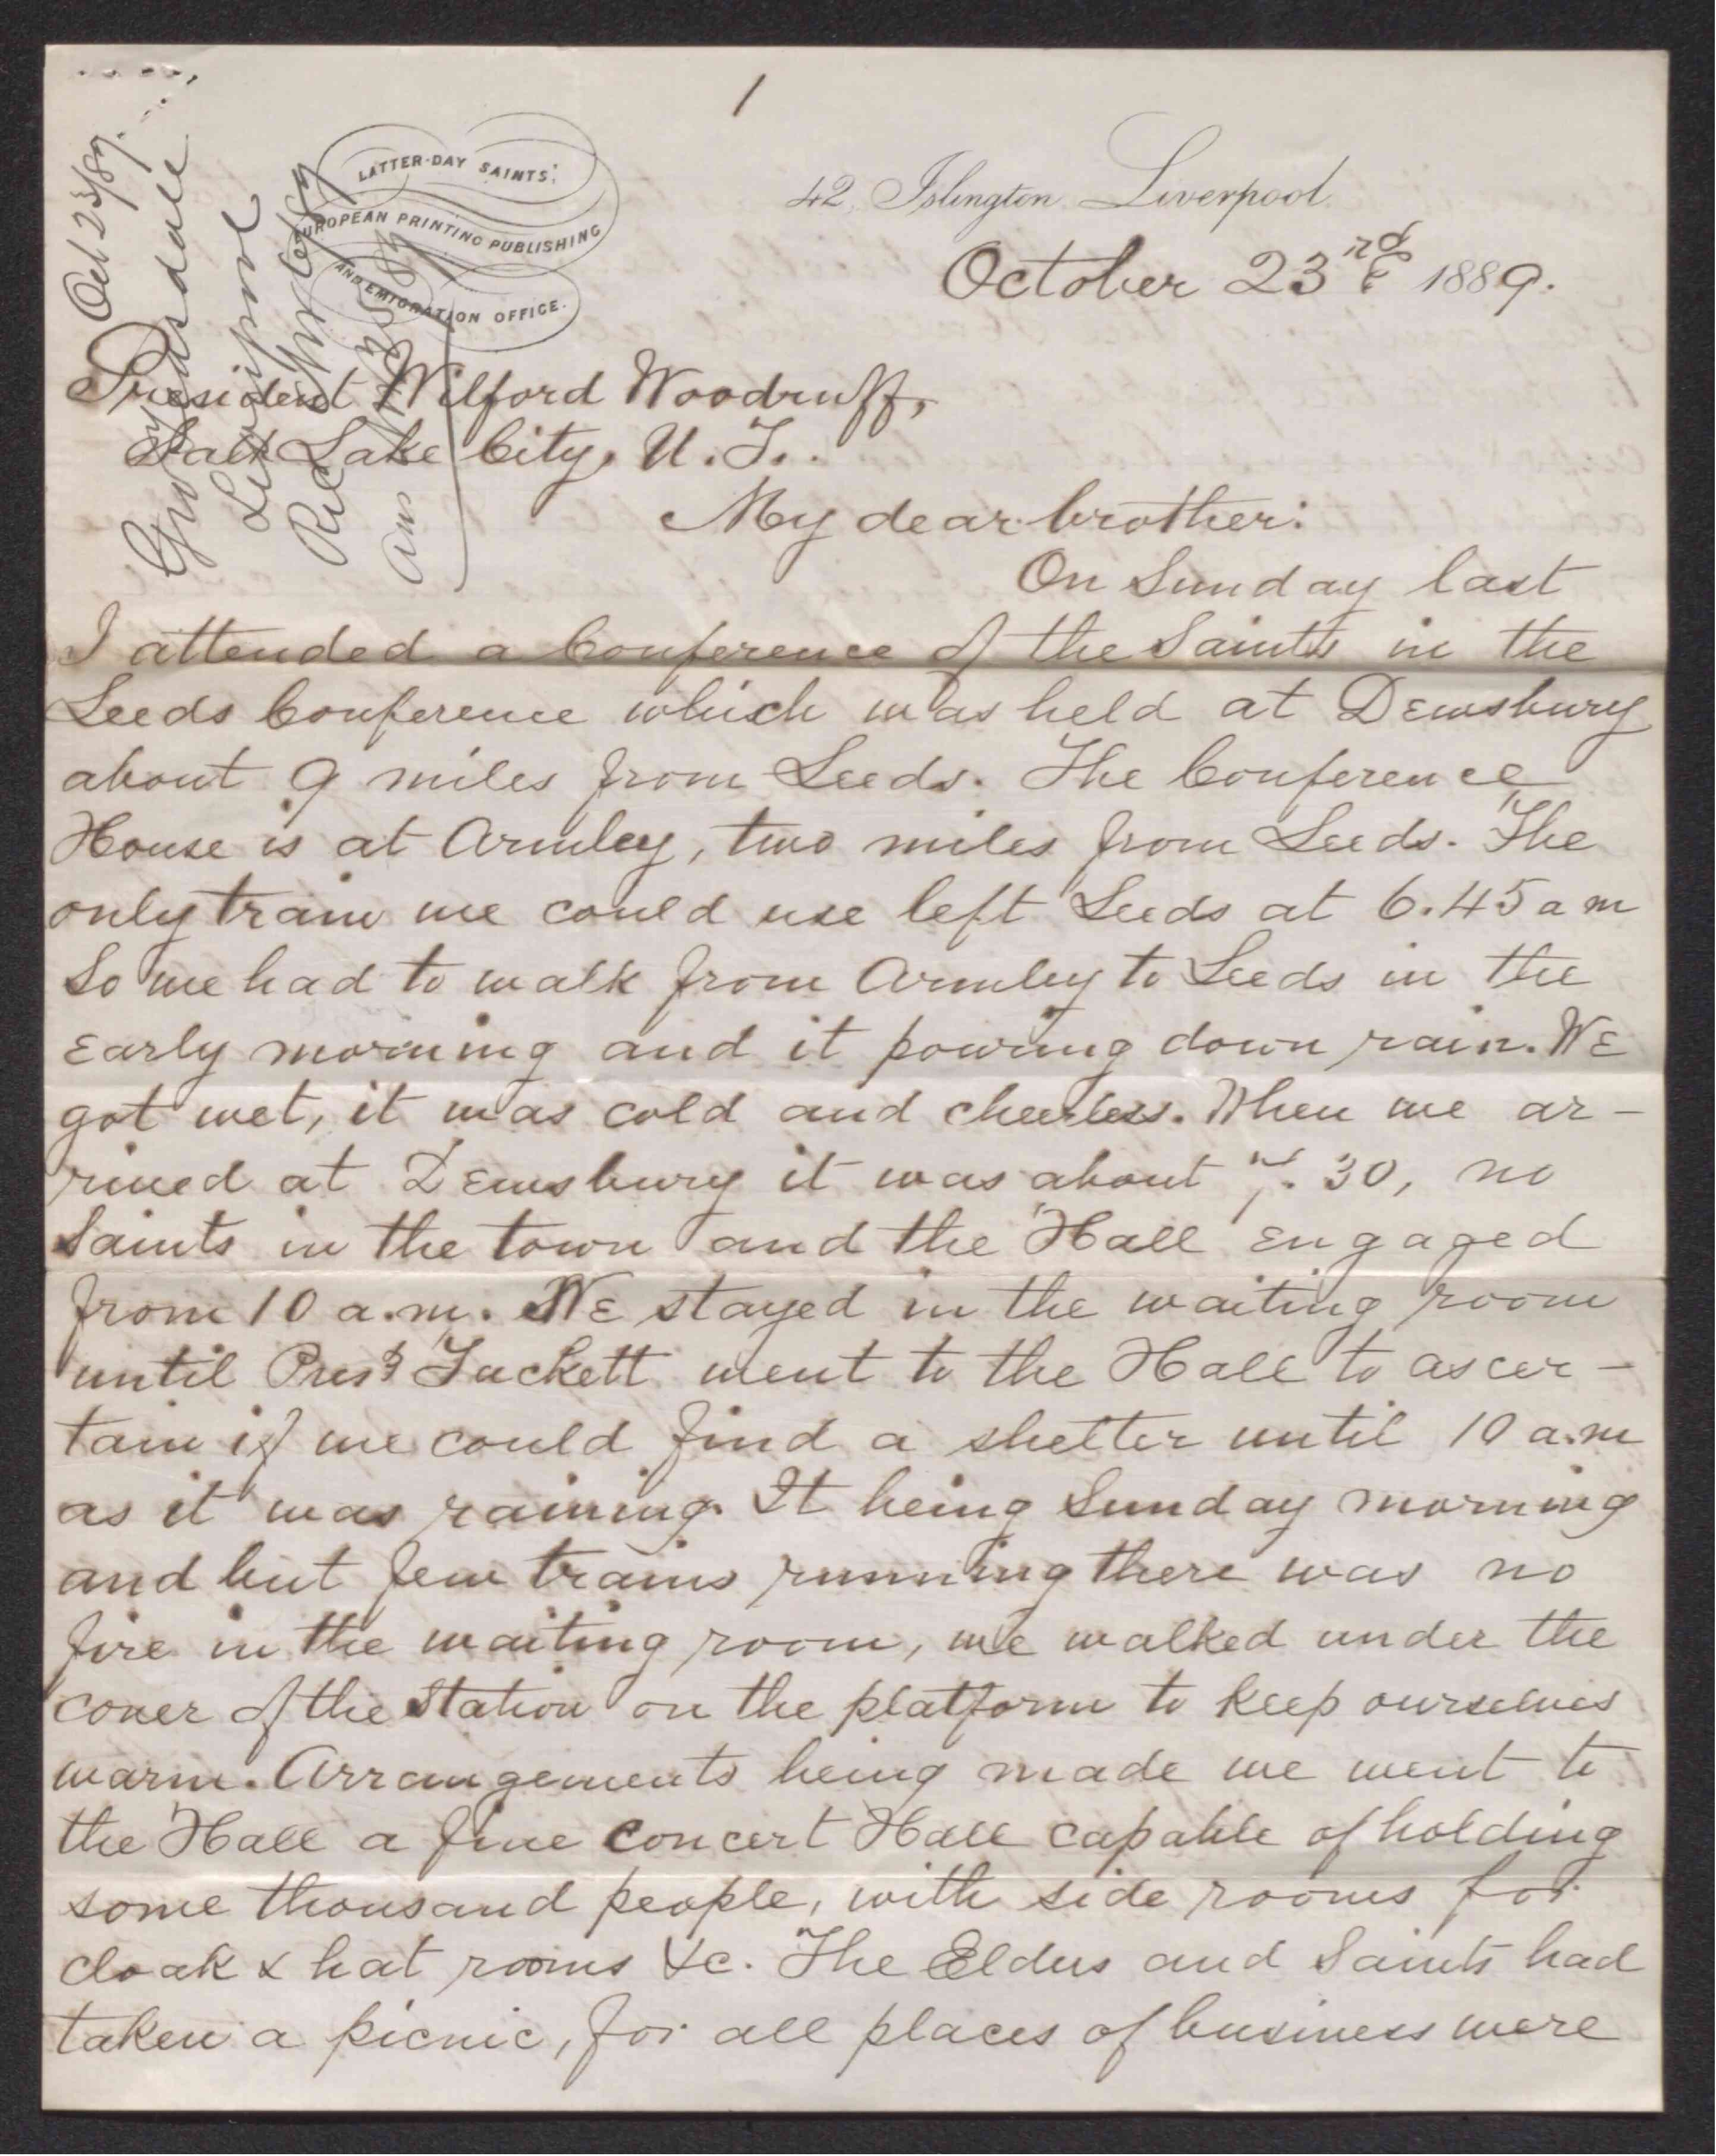 1
LATTER-DAY SAINTS'
EUROPEAN PRINTING PUBLISHING
AND EMIGRATION OFFICE.
42, Islington, Liverpool.
October 23rd 1889.
Oct 23/89.
Geo Teasdale
Liverpool
Rec Nov 6/89
Ans
President Wilford Woodruff,
Salt Lake City, U.T..
My dear brother:
On Sunday last
I attended a Conference of the Saints in the
Leeds Conference which was held at Dewsbury
about 9 miles from Leeds. The Conference
House is at Armley, two miles from Leeds. The
only train we could use left Leeds at 6.45 a m
So we had to walk from Armley to Leeds in the
early morning and it pouring down rain. We
got wet, it was cold and cheerless. When we ar-
rived at Dewsbury it was about 7.30, no
Saints in the town and the Hall engaged
from 10 a.m. We stayed in the waiting room
until Prest Tuckett went to the Hall to ascer-
tain if we could find a shelter until 10 a.m
as it was raining. It being Sunday morning
and but few trains running there was no
fire in the waiting room, we walked under the
cover of the station on the platform to keep ourselves
warm. Arrangements being made we went to
the Hall a fine concert Hall capable of holding
some thousand people, with side rooms for
cloak & hat rooms &c. The Elders and Saints had
taken a picnic, for all places of business were